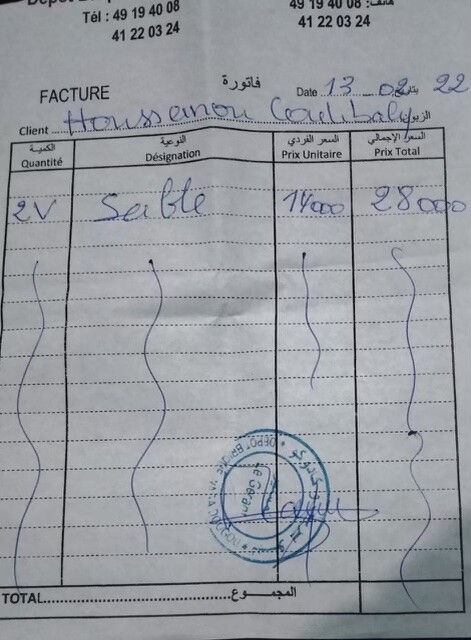 Tél : 49 19 40 08
49 19 40 08 :هاتف
41 22 03 24
41 22 03 24
فاتورة
FACTURE
Date 13_02_22 بتاريخ
Client Housseinou Coulibaly الزبون
الكمية النوعية السعر الفردي السعر الإجمالي
Quantité Désignation Prix Unitaire Prix Total
2V Sable 14000 28000
Le Gerant
TOTAL المجموع